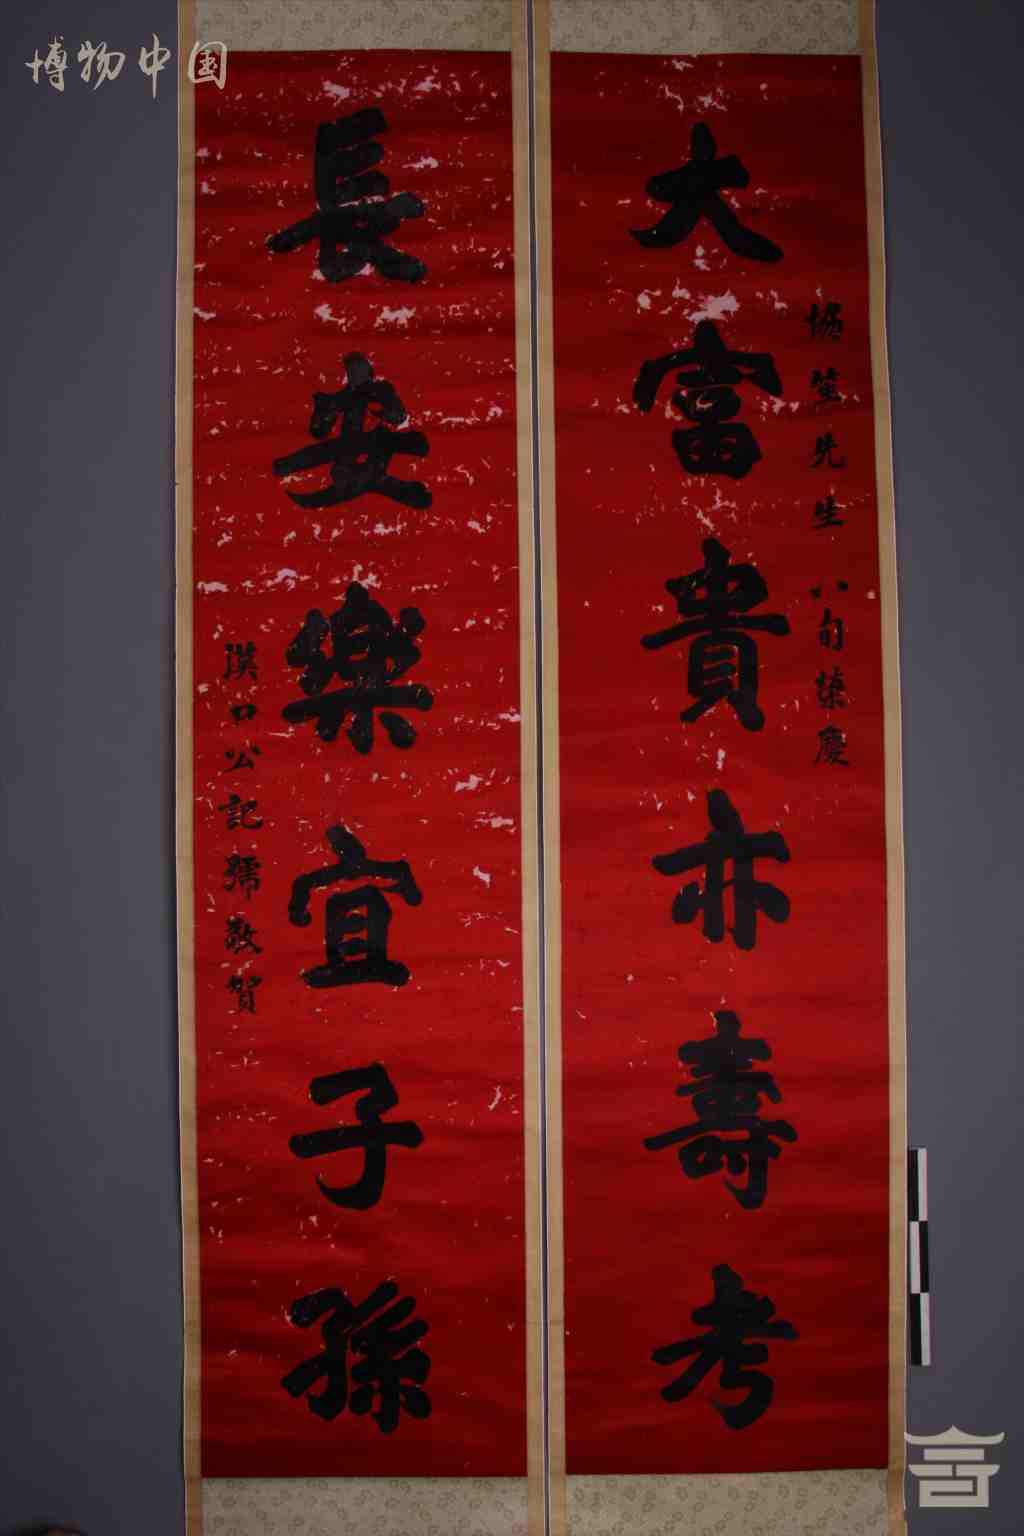 博物中国
大富貴亦壽考
協笙先生 八旬榮慶
長安樂宜子孫
漢口公記號敬賀